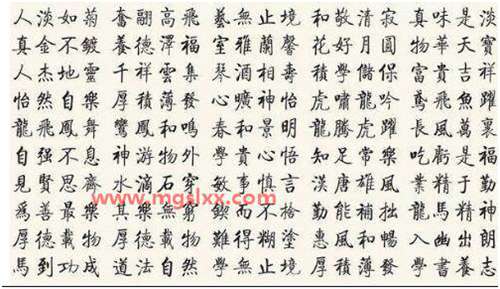 人淡如菊 奮翮高飛 藝無止境 和敬清寂 真味是淡
真金不鍍 養德澤福 室雅蘭馨 花好月圓 物華天寶
人杰地靈 千祥雲集 琴酒相壽 學儲 富貴吉祥
怡然自樂 厚積薄發 心曠神怡 虎嘯龍吟 鳶飛魚躍
龍飛鳳舞 鸞鳳和鳴 春和景明 龍騰虎躍 長風萬裏
自强不息 神游物外 學貴心悟 知足常樂 吃虧是福
見賢思齊 水滴石穿 敏事慎言 漢唐雄風 業精于勤
www.mgslxx.com
為善最樂 其樂無窮 鍥而不捨 勤能補拙 龍馬精神
厚德載物 厚德載物 難得糊塗 惠風和暢 入幽出朗
馬到功成 道法自然 學無止境 厚積薄發 學書養志